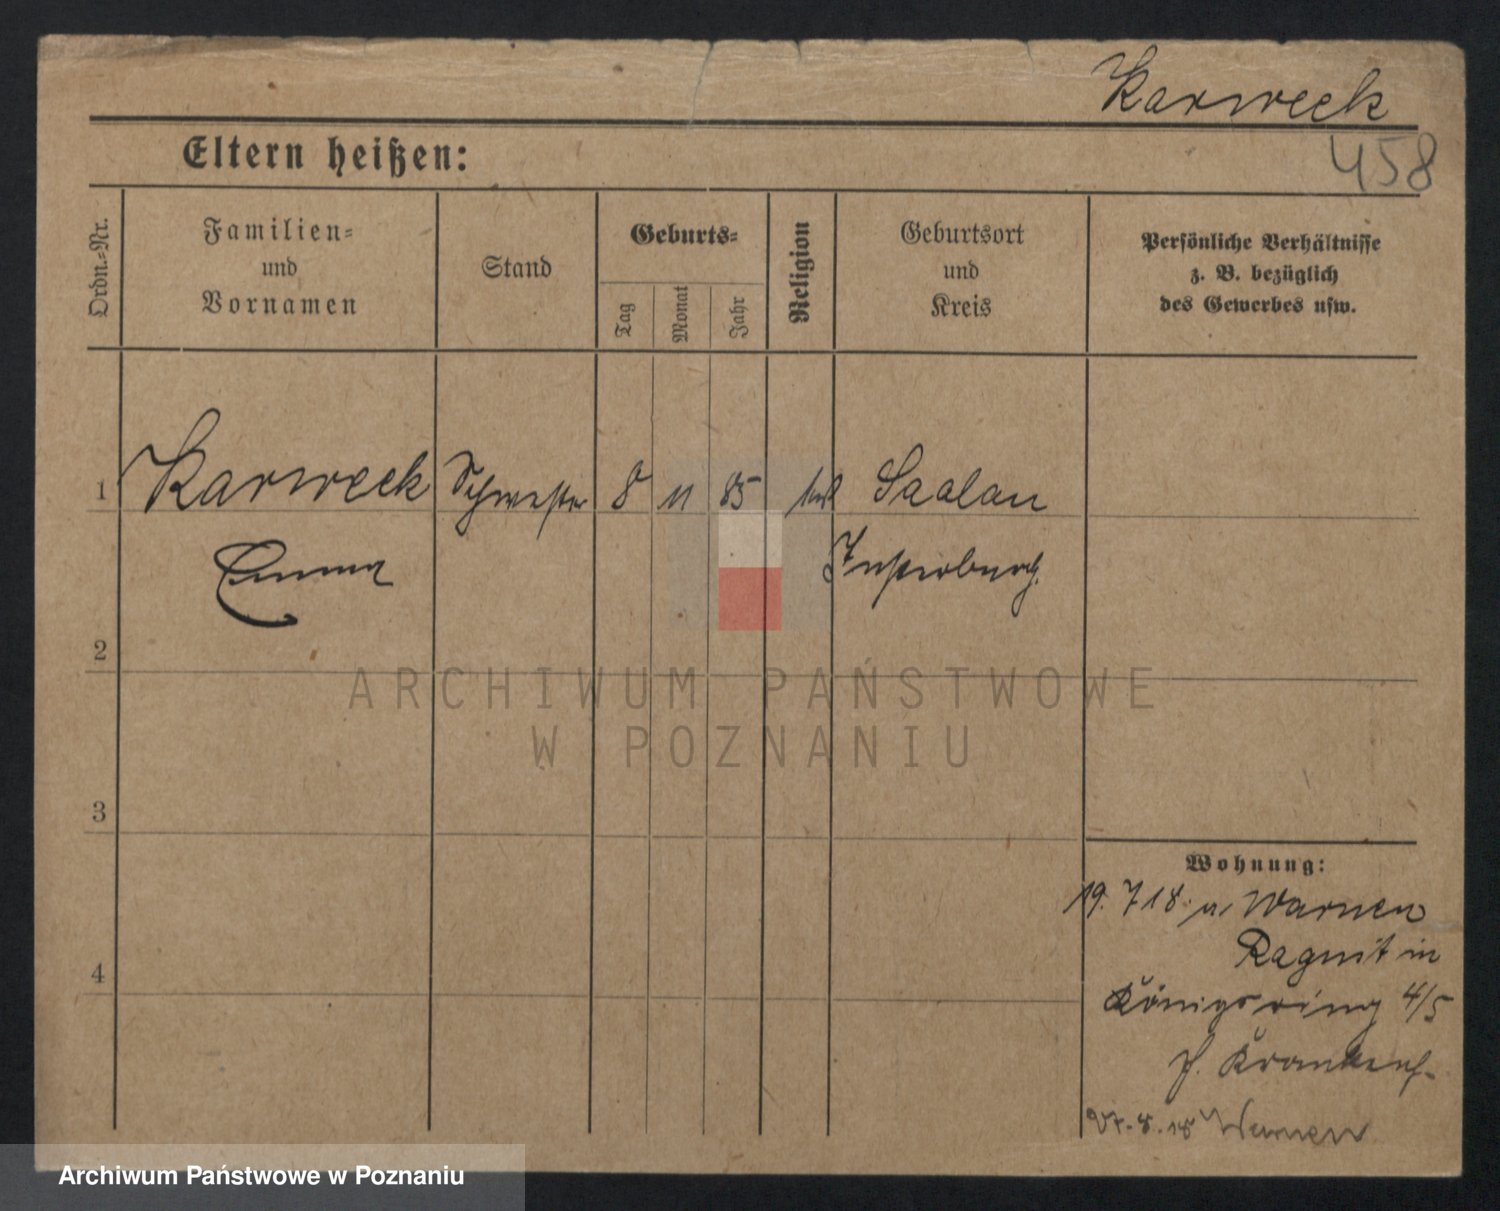 Karweck
458
Eltern heißen:
Ordn.-Nr.
Familien-
und
Vornamen
Stand
Geburts-
Tag
Monat
Jahr
Religion
Geburtsort
und
Kreis
Persönliche Verhältnisse
z. B. bezüglich
des Gewerbes usw.
1 Karweck Schwester 8 11 85 Saalau
Emma Insterburg.
2
3
4
Wohnung:
19. 7 18. Warnen
Ragnit in
Königsring 4/5
Krankenh-
27.8.18 Warnen
ARCHIWUM PAŃSTWOWE
W POZNANIU
Archiwum Państwowe w Poznaniu